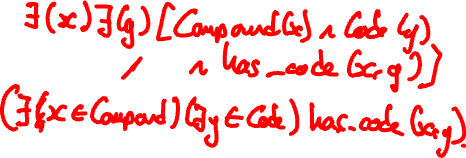 ∃(x) ∃(y) [Compound(x) ∧ Code(y)
∧ has_code(x, y)]
(∃x ∈ Compound)(∃y ∈ Code) has_code(x,y).